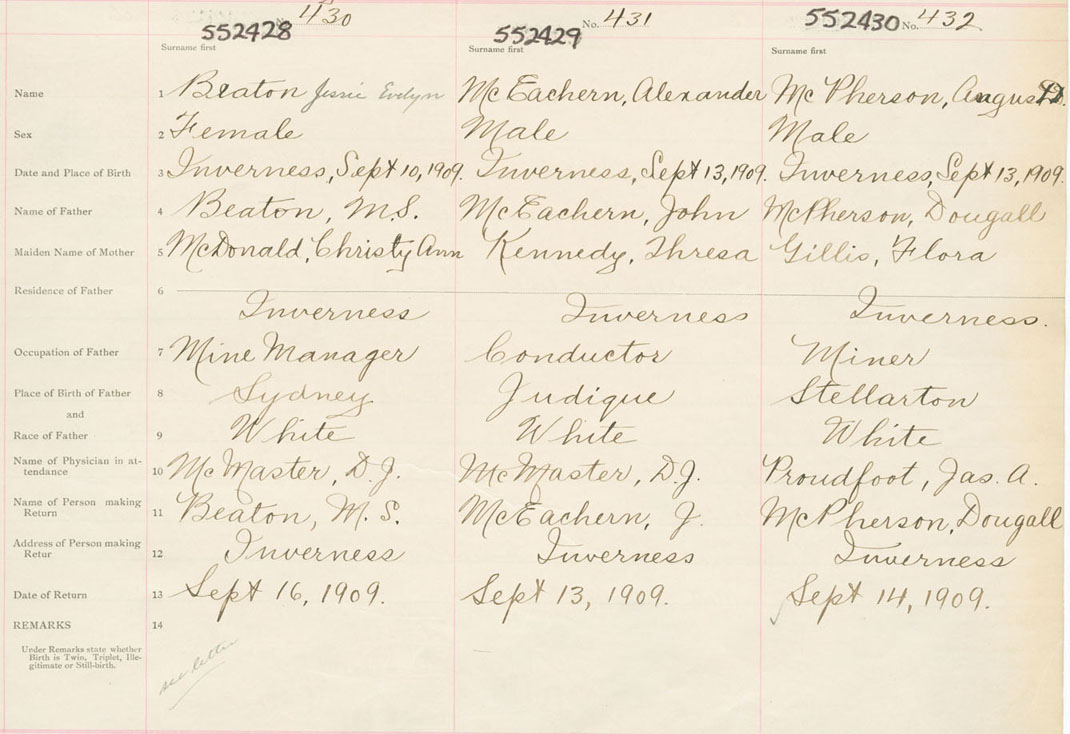 430 No. 431 552430 No. 432
552428 552429
Surname first Surname first Surname first
Name 1 Beaton Jessie Evelyn McEachern, Alexander McPherson, Angus D.
Sex 2 Female Male Male
Date and Place of Birth 3 Inverness, Sept 10, 1909. Inverness, Sept 13, 1909. Inverness, Sept 13, 1909.
Name of Father 4 Beaton, M.S. McEachern, John McPherson, Dougall
Maiden Name of Mother 5 McDonald, Christy Ann Kennedy, Thresa Gillis, Flora
Residence of Father 6
Inverness Inverness Inverness.
Occupation of Father 7 Mine Manager Conductor Miner
Place of Birth of Father 8 Sydney Judique Stellarton
and
Race of Father 9 White White White
Name of Physician in at-
tendance 10 McMaster, D.J. McMaster, D.J. Proudfoot, Jas. A.
Name of Person making
Return 11 Beaton, M. S. McEachern, J. McPherson, Dougall
Address of Person making
Retur 12 Inverness Inverness Inverness
Date of Return 13 Sept 16, 1909. Sept 13, 1909. Sept 14, 1909.
REMARKS 14
Under Remarks state whether
Birth is Twin, Triplet, Ille-
gitimate or Still-birth.
see letter